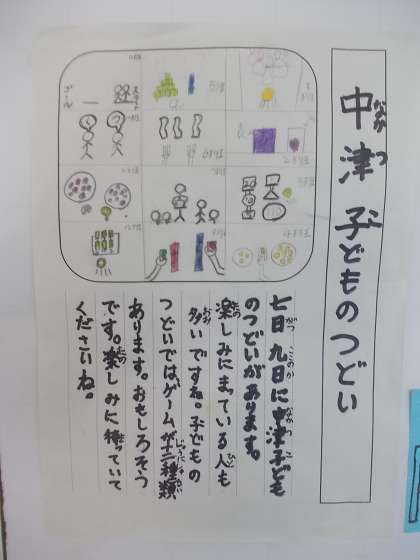 中津子どものつどい
七月九日に中津子ども
のつどいがあります。
楽しみにまっている人も
多いですね。子どもの
つどいではゲームが十二種類
あります。おもしろそう
です。楽しみに待っていて
くださいね。
スタート
ゴール